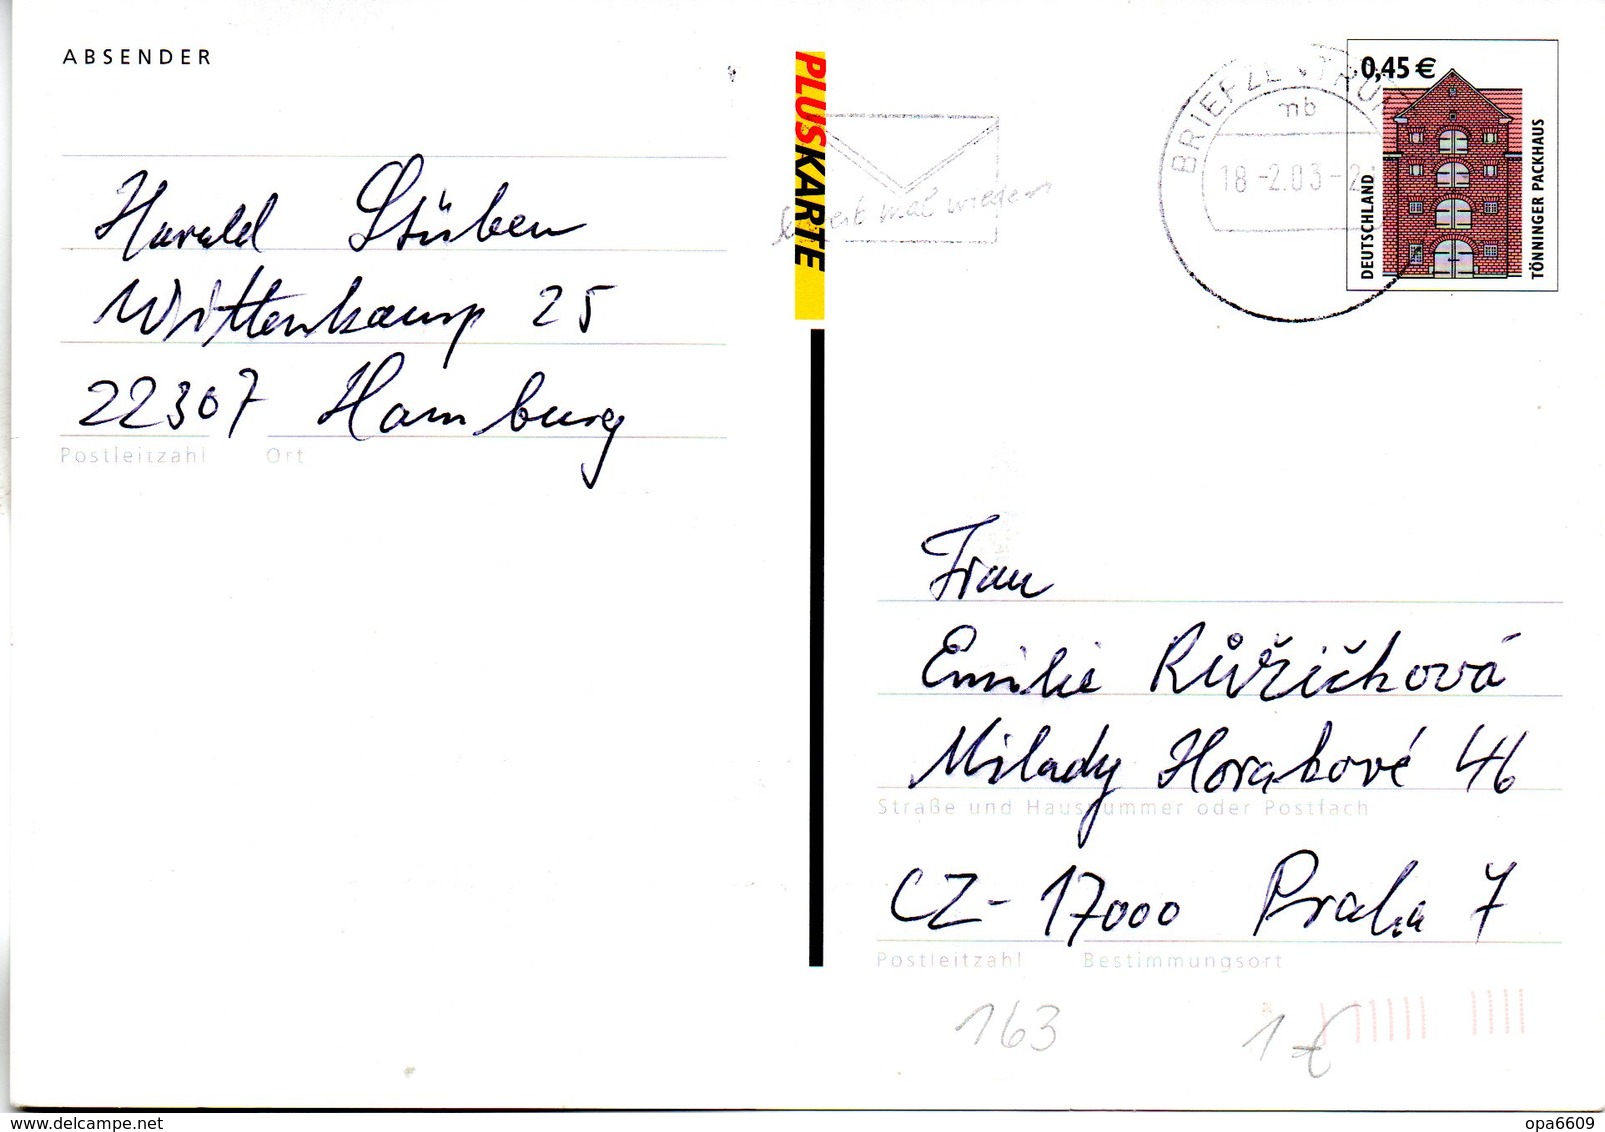 ABSENDER
Harald Stüben
Wittenkamp 25
22307 Hamburg
Postleitzahl Ort
PLUSKARTE
mal wieder
BRIEFZENTRUM
nb
18-2.03-2
0,45 €
DEUTSCHLAND
TÖNNINGER PACKHAUS
Frau
Emilie Růžičková
Milady Horakové 46
Straße und Hausnummer oder Postfach
CZ-17000 Praha 7
Postleitzahl Bestimmungsort
163
1 €
www.delcampe.net
opa6609